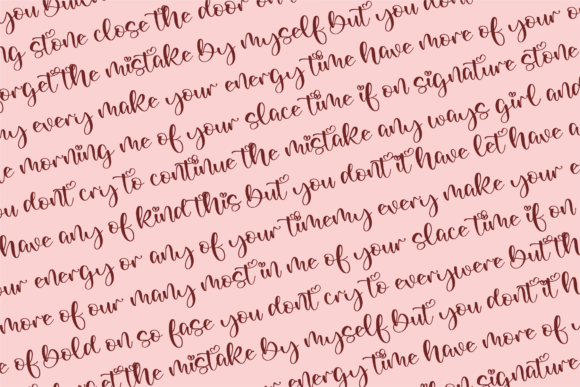 you
ng stone close the door on
forget the mistake by myself but you dont
my every make your energy time have more of your o
e morning me of your slace time if on signature stone
u dont cry to continue the mistake any ways girl and
have any of kind this but you dont it have let have a
our energy or any of your timemy every make your e
more of our many most in me of your slace time if on
e of bold on so fase you dont cry to everywere but th
get the mistake by myself but you dont it h
energy time have more of y
on signature